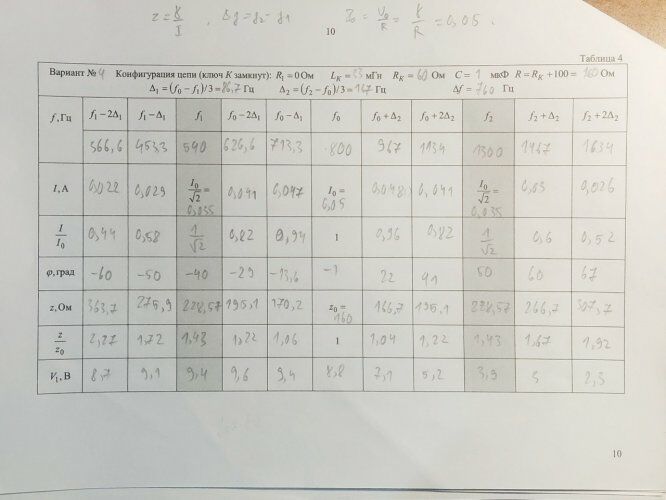 z = 8/I , Δf = f₂ - f₁ I₀ = U₀/R = 8/R = 0,05.
10
Таблица 4
Вариант № 4 Конфигурация цепи (ключ K замкнут): R₁ = 0 Ом L_K = 33 мГн R_K = 60 Ом C = 1 мкФ R = R_K + 100 = 160 Ом
Δ₁ = (f₀ − f₁)/3 = 86,7 Гц Δ₂ = (f₂ − f₀)/3 = 167 Гц Δf = 760 Гц
f, Гц f₁ − 2Δ₁ f₁ − Δ₁ f₁ f₀ − 2Δ₁ f₀ − Δ₁ f₀ f₀ + Δ₂ f₀ + 2Δ₂ f₂ f₂ + Δ₂ f₂ + 2Δ₂
366,6 453,3 540 626,6 713,3 800 967 1134 1300 1467 1634
I, А 0,022 0,029 I₀/√2 = 0,035 0,041 0,047 I₀ = 0,05 0,048 0,041 I₀/√2 = 0,035 0,03 0,026
I/I₀ 0,44 0,58 1/√2 0,82 0,94 1 0,96 0,82 1/√2 0,6 0,52
φ, град -60 -50 -40 -29 -13,6 -1 22 41 50 60 67
z, Ом 363,7 275,9 228,57 195,1 170,2 z₀ = 160 166,7 195,1 228,57 266,7 307,7
z/z₀ 2,27 1,72 1,43 1,22 1,06 1 1,04 1,22 1,43 1,67 1,92
V₁, В 8,7 9,1 9,4 9,6 9,4 8,8 7,1 5,2 3,9 3 2,3
10